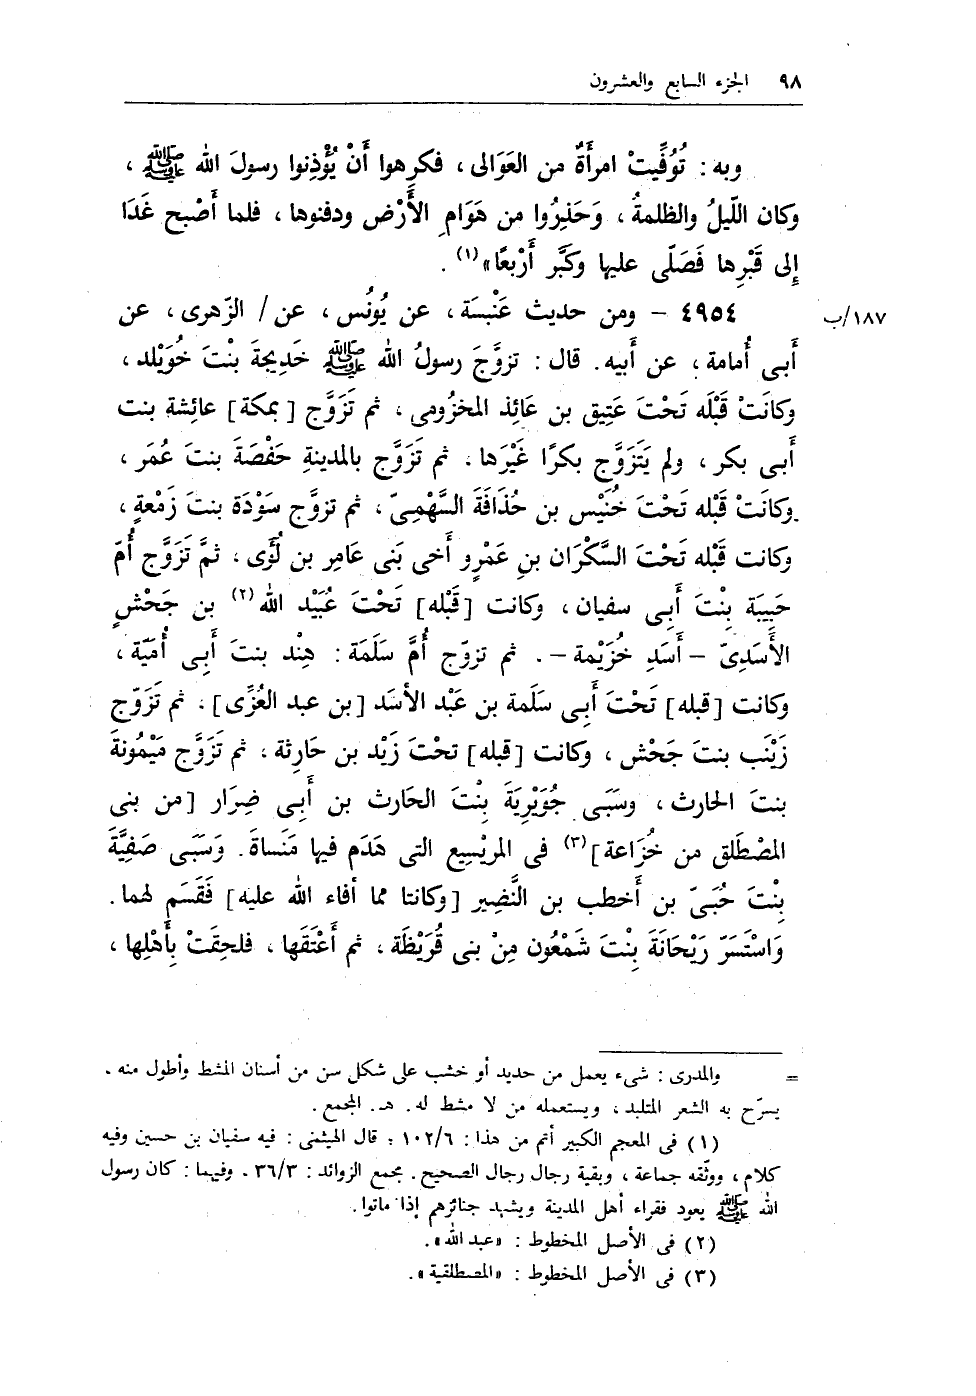 ٩٨ الجزء السابع والعشرون
وبه : تُوُفِّيتْ امرأَةٌ من العَوَالى ، فكرهوا أَنْ يُؤْذِنوا رسولَ الله ﷺ ،
وكان اللّيلُ والظلمةُ ، وَحَذِرُوا من هَوَامِ الأَرْض ودفنوها ، فلما أَصْبح غَدَا
إِلى قَبْرِها فَصَلّى عليها وكَبَّر أَرْبعًا» (١) .
٤٩٥٤ - ومن حديث عَنْبسَة ، عن يُونُس ، عن / الزّهرى ، عن
١٨٧/ب
أَبى أُمامة ، عن أَبيه. قال : تزوَّجَ رسولُ الله ﷺ خَدِيجةَ بنْتَ خُوَيْلد ،
وكانَتْ قَبْلَه تَحْتَ عَتِيق بن عَائِذ المخزُومى ، ثم تَزَوَّج [ بمكة ] عائِشة بنت
أَبى بكر ، ولم يَتَزَوَّج بكرًا غَيْرَها . ثم تَزَوَّج بالمدينةِ حَفْصَةَ بنتَ عُمَر ،
وكانَتْ قَبْله تَحْتَ خُنَيْس بن حُذَافَةَ السَّهْمِىّ ، ثم تزوَّج سَوْدَة بنتَ زَمْعةٍ ،
وكانت قَبْله تَحْتَ السَّكْرَان بنِ عَمْرٍو أَخى بَنى عَامِر بن لُؤَى ، ثمَّ تَزَوَّج أُمّ
حَبِيبَة بِنْتَ أَبى سفيان ، وكانت [ قَبْله ] تَحْتَ عُبَيْد الله (٢) بن جَحْشٍ
الأَسَدِىّ - أَسَدِ خُزَيْمة -. ثم تزوّج أُمَّ سَلَمَة : هِنْد بنتَ أَبى أُمَيّة ،
وكانت [ قبله ] تَحْتَ أَبى سَلَمة بن عَبْد الأَسَد [ بن عبد العُزَّى ] ، ثم تَزَوّج
زَيْنَب بنتَ جَحْش ، وكانت [ قبله ] تحْتَ زَيْد بن حَارِثة ، ثم تَزَوَّج مَيْمُونةَ
بنتَ الحارث ، وسَبَى جُوَيْرِيَةَ بِنْتَ الحَارث بن أَبى ضِرَار [ من بنى
المصْطَلق من خُزَاعة ] (٣) فى المريْسِيع التى هَدَم فيها مَنَساةَ . وَسَبَى صَفِيَّةَ
بِنْتَ حُيَىّ بن أَخطب بن النَّضِير [ وكانتا مما أفاء الله عليه ] فَقَسَم لهما .
وَاسْتَسَرّ رَيْحَانَةَ بِنْتَ شَمْعُون مِنْ بنى قُرَيْظَة ، ثم أَعْتَقَها ، فلحِقَتْ بِأَهْلِها ،
= والمدرى : شىء يعمل من حديد أو خشب على شكل سن من أسنان المشط وأطول منه .
يسرّح به الشعر المتلبد ، ويستعمله من لا مشط له . هـ. المجمع .
(١) فى المعجم الكبير أتم من هذا : ١٠٢/٦ ؛ قال الهيثمى : فيه سفيان بن حسين وفيه
كلام ، ووثّقه جماعة ، وبقية رجال رجال الصحيح . مجمع الزوائد : ٣٦/٣ . وفيهما : كان رسول
الله ﷺ يعود فقراء أهل المدينة ويشهد جنائزهم إذا ماتوا .
(٢) فى الأصل المخطوط : «عبد الله» .
(٣) فى الأصل المخطوط : «المصطلقية» .